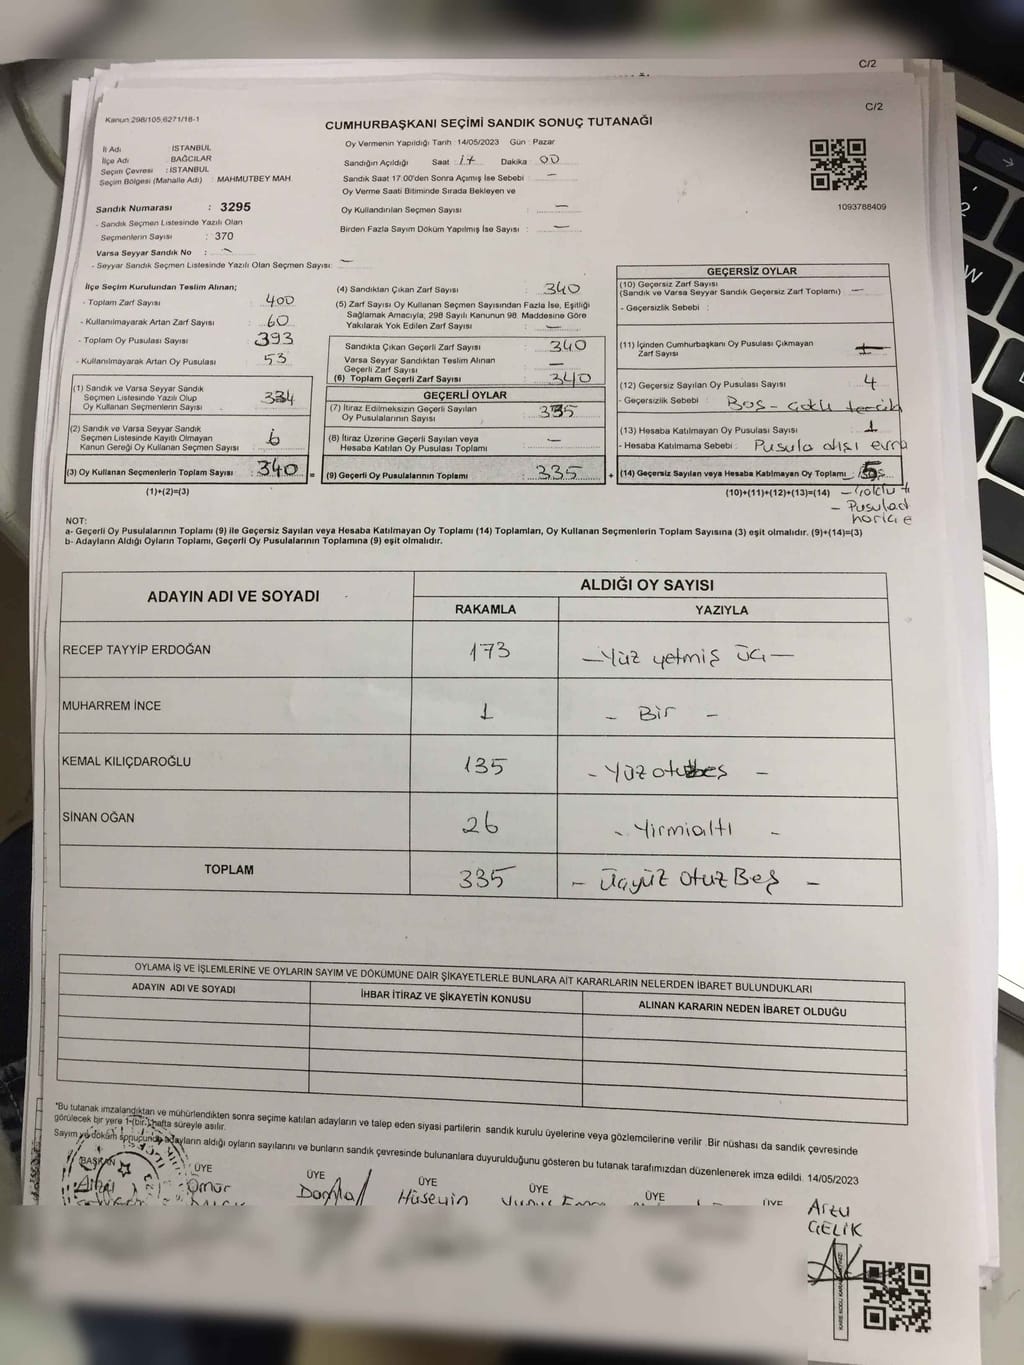 C/2
C/2
Kanun:298/105,6271/18-1
CUMHURBAŞKANI SEÇİMİ SANDIK SONUÇ TUTANAĞI
İl Adı : İSTANBUL
İlçe Adı : BAĞCILAR
Seçim Çevresi : İSTANBUL
Seçim Bölgesi (Mahalle Adı) : MAHMUTBEY MAH.
Sandık Numarası : 3295
- Sandık Seçmen Listesinde Yazılı Olan
Seçmenlerin Sayısı : 370
Varsa Seyyar Sandık No : -
- Seyyar Sandık Seçmen Listesinde Yazılı Olan Seçmen Sayısı: -
Oy Vermenin Yapıldığı Tarih : 14/05/2023 Gün : Pazar
Sandığın Açıldığı Saat : 17 Dakika : 00
Sandık Saat 17.00'den Sonra Açılmış İse Sebebi : -
Oy Verme Saati Bitiminde Sırada Bekleyen ve
Oy Kullandırılan Seçmen Sayısı : -
Birden Fazla Sayım Döküm Yapılmış İse Sayısı : -
1093788409
İlçe Seçim Kurulundan Teslim Alınan;
- Toplam Zarf Sayısı : 400
- Kullanılmayarak Artan Zarf Sayısı : 60
- Toplam Oy Pusulası Sayısı : 393
- Kullanılmayarak Artan Oy Pusulası : 53
(1) Sandık ve Varsa Seyyar Sandık
Seçmen Listesinde Yazılı Olup
Oy Kullanan Seçmenlerin Sayısı : 334
(2) Sandık ve Varsa Seyyar Sandık
Seçmen Listesinde Kayıtlı Olmayan
Kanun Gereği Oy Kullanan Seçmen Sayısı : 6
(3) Oy Kullanan Seçmenlerin Toplam Sayısı : 340
(1)+(2)=(3)
(4) Sandıktan Çıkan Zarf Sayısı : 340
(5) Zarf Sayısı Oy Kullanan Seçmen Sayısından Fazla İse, Eşitliği
Sağlamak Amacıyla; 298 Sayılı Kanunun 98. Maddesine Göre
Yakılarak Yok Edilen Zarf Sayısı : -
Sandıkta Çıkan Geçerli Zarf Sayısı : 340
Varsa Seyyar Sandıktan Teslim Alınan
Geçerli Zarf Sayısı : -
(6) Toplam Geçerli Zarf Sayısı : 340
GEÇERLİ OYLAR
(7) İtiraz Edilmeksizin Geçerli Sayılan
Oy Pusulalarının Sayısı : 335
(8) İtiraz Üzerine Geçerli Sayılan veya
Hesaba Katılan Oy Pusulası Toplamı : -
= (9) Geçerli Oy Pusulalarının Toplamı : 335 +
GEÇERSİZ OYLAR
(10) Geçersiz Zarf Sayısı
(Sandık ve Varsa Seyyar Sandık Geçersiz Zarf Toplamı) : -
- Geçersizlik Sebebi :
(11) İçinden Cumhurbaşkanı Oy Pusulası Çıkmayan
Zarf Sayısı :
(12) Geçersiz Sayılan Oy Pusulası Sayısı : 4
- Geçersizlik Sebebi : Boş - Çoklu tercih
(13) Hesaba Katılmayan Oy Pusulası Sayısı : 1
- Hesaba Katılmama Sebebi : Pusula dışı evra
(14) Geçersiz Sayılan veya Hesaba Katılmayan Oy Toplamı : 5
(10)+(11)+(12)+(13)=(14)
- Pusulad
NOT:
a- Geçerli Oy Pusulalarının Toplamı (9) ile Geçersiz Sayılan veya Hesaba Katılmayan Oy Toplamı (14) Toplamları, Oy Kullanan Seçmenlerin Toplam Sayısına (3) eşit olmalıdır. (9)+(14)=(3)
b- Adayların Aldığı Oyların Toplamı, Geçerli Oy Pusulalarının Toplamına (9) eşit olmalıdır.
ADAYIN ADI VE SOYADI ALDIĞI OY SAYISI
RAKAMLA YAZIYLA
RECEP TAYYİP ERDOĞAN 173 - Yüz yetmiş üç -
MUHARREM İNCE 1 - Bir -
KEMAL KILIÇDAROĞLU 135 - Yüz otuzbeş -
SİNAN OĞAN 26 - Yirmialtı -
TOPLAM 335 - Üçyüz otuz Beş -
OYLAMA İŞ VE İŞLEMLERİNE VE OYLARIN SAYIM VE DÖKÜMÜNE DAİR ŞİKAYETLERLE BUNLARA AİT KARARLARIN NELERDEN İBARET BULUNDUKLARI
ADAYIN ADI VE SOYADI İHBAR İTİRAZ VE ŞİKAYETİN KONUSU ALINAN KARARIN NEDEN İBARET OLDUĞU
"Bu tutanak imzalandıktan ve mühürlendikten sonra seçime katılan adayların ve talep eden siyasi partilerin sandık kurulu üyelerine veya gözlemcilerine verilir .Bir nüshası da sandık çevresinde
görülecek bir yere 1-(bir) hafta süreyle asılır.
Sayım ve döküm sonucunda adayların aldığı oyların sayılarını ve bunların sandık çevresinde bulunanlara duyurulduğunu gösteren bu tutanak tarafımızdan düzenlenerek imza edildi. 14/05/2023
BAŞKAN ÜYE ÜYE ÜYE ÜYE ÜYE ÜYE
Ömür Hüseyin Yunus Emre Arzu
ÇELİK